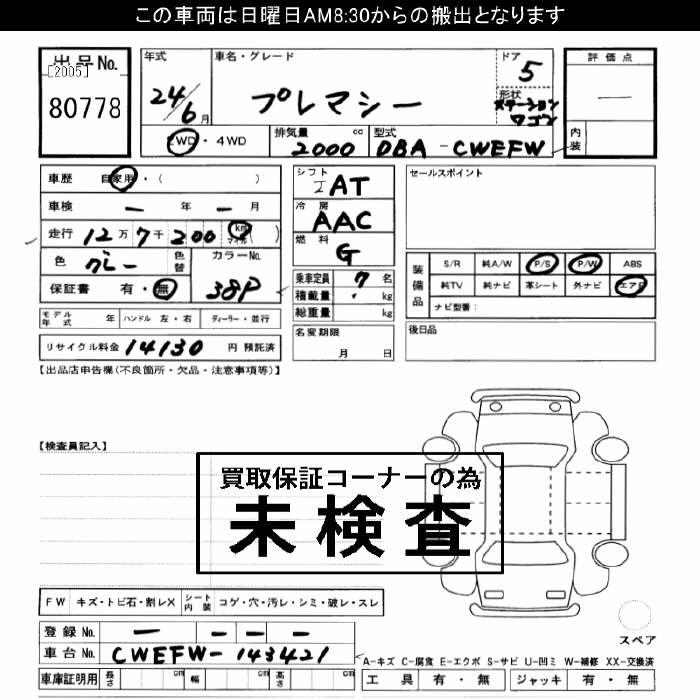 この車両は日曜日AM8:30からの搬出となります
出品No.
[2005]
80778
年式
24/6月
車名・グレード
プレマシー
ドア
5
形状
ステーションワゴン
評価点
—
内装
2WD・4WD
排気量 cc
2000
型式
DBA-CWEFW
車歴 自家用・( )
車検 — 年 — 月
走行 12万7千200 km マイル ( )
色 グレー 色替
カラーNo.
38P
保証書 有・無
シフト
IAT
冷房
AAC
燃料
G
乗車定員 7 名
積載量 ・ kg
総重量 kg
名変期限
月 日
セールスポイント
装備品
S/R 純A/W P/S P/W ABS
純TV 純ナビ 革シート 外ナビ エアB
ナビ型番:
後日品
モデル年式 年 ハンドル 左・右 ディーラー・並行
リサイクル料金 14130 円 預託済
【出品店申告欄(不良箇所・欠品・注意事項等)】
【検査員記入】
買取保証コーナーの為
未検査
FW キズ・トビ石・割レX シート内装 コゲ・穴・汚レ・シミ・破レ・スレ
登録No. — — — —
車台No. CWEFW-143421
車庫証明用 長さ cm 幅 cm 高さ cm
スペア
A-キズ C-腐食 E-エクボ S-サビ U-凹ミ W-補修 XX-交換済
工具 有・無 ジャッキ 有・無